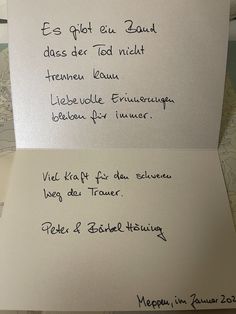 Es gibt ein Band
dass der Tod nicht
trennen kann
Liebevolle Erinnerungen
bleiben für immer.
Viel Kraft für den schweren
Weg der Trauer.
Peter & Bärbel Höning
Meppen, im Januar 202